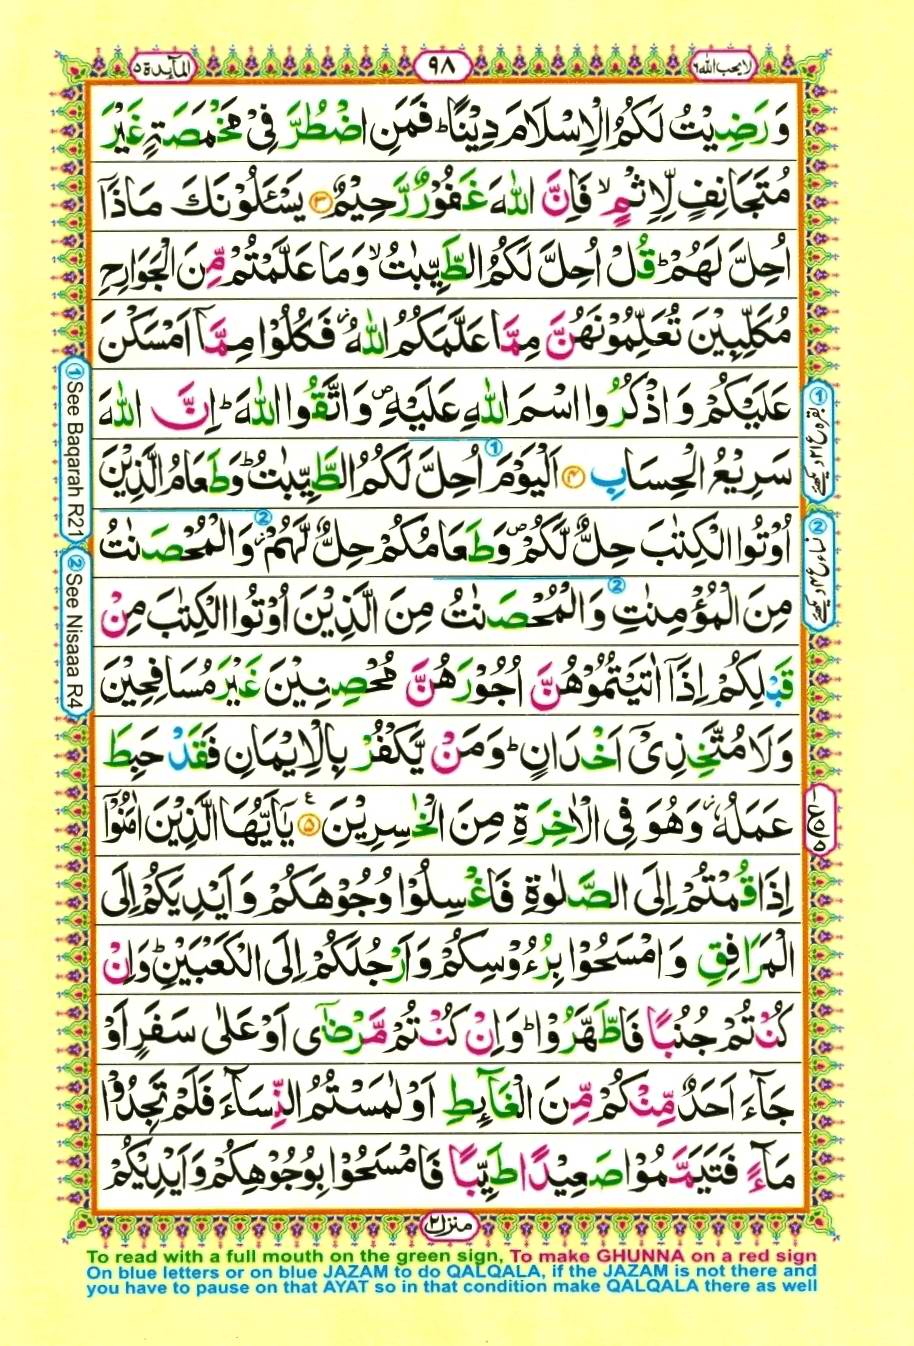 لا يحب الله ٦
٩٨
المآئدة ٥
وَرَضِيْتُ لَكُمُ الْاِسْلَامَ دِيْنًا ؕ فَمَنِ اضْطُرَّ فِىْ مَخْمَصَةٍ غَيْرَ
مُتَجَانِفٍ لِّاِثْمٍ ۙ فَاِنَّ اللّٰهَ غَفُوْرٌ رَّحِيْمٌ ۝۳ يَسْـَٔلُوْنَكَ مَاذَاۤ
اُحِلَّ لَهُمْ ؕ قُلْ اُحِلَّ لَكُمُ الطَّيِّبٰتُ ۙ وَمَا عَلَّمْتُمْ مِّنَ الْجَوَارِحِ
مُكَلِّبِيْنَ تُعَلِّمُوْنَهُنَّ مِمَّا عَلَّمَكُمُ اللّٰهُ ۫ فَكُلُوْا مِمَّاۤ اَمْسَكْنَ
عَلَيْكُمْ وَاذْكُرُوا اسْمَ اللّٰهِ عَلَيْهِ ۪ وَاتَّقُوا اللّٰهَ ؕ اِنَّ اللّٰهَ
سَرِيْعُ الْحِسَابِ ۝۴ اَلْيَوْمَ اُحِلَّ لَكُمُ الطَّيِّبٰتُ ؕ وَطَعَامُ الَّذِيْنَ
اُوْتُوا الْكِتٰبَ حِلٌّ لَّكُمْ ۪ وَطَعَامُكُمْ حِلٌّ لَّهُمْ ۫ وَالْمُحْصَنٰتُ
مِنَ الْمُؤْمِنٰتِ وَالْمُحْصَنٰتُ مِنَ الَّذِيْنَ اُوْتُوا الْكِتٰبَ مِنْ
قَبْلِكُمْ اِذَاۤ اٰتَيْتُمُوْهُنَّ اُجُوْرَهُنَّ مُحْصِنِيْنَ غَيْرَ مُسَافِحِيْنَ
وَلَا مُتَّخِذِىْۤ اَخْدَانٍ ؕ وَمَنْ يَّكْفُرْ بِالْاِيْمَانِ فَقَدْ حَبِطَ
عَمَلُهٗ ۫ وَهُوَ فِى الْاٰخِرَةِ مِنَ الْخٰسِرِيْنَ ۝۵ يٰۤاَيُّهَا الَّذِيْنَ اٰمَنُوْۤا
اِذَا قُمْتُمْ اِلَى الصَّلٰوةِ فَاغْسِلُوْا وُجُوْهَكُمْ وَاَيْدِيَكُمْ اِلَى
الْمَرَافِقِ وَامْسَحُوْا بِرُءُوْسِكُمْ وَاَرْجُلَكُمْ اِلَى الْكَعْبَيْنِ ؕ وَاِنْ
كُنْتُمْ جُنُبًا فَاطَّهَّرُوْا ؕ وَاِنْ كُنْتُمْ مَّرْضٰۤى اَوْ عَلٰى سَفَرٍ اَوْ
جَآءَ اَحَدٌ مِّنْكُمْ مِّنَ الْغَآئِطِ اَوْ لٰمَسْتُمُ النِّسَآءَ فَلَمْ تَجِدُوْا
مَآءً فَتَيَمَّمُوْا صَعِيْدًا طَيِّبًا فَامْسَحُوْا بِوُجُوْهِكُمْ وَاَيْدِيْكُمْ
① See Baqarah R21
② See Nisaaa R4
① بقره ع ٢١ دیکھئے
② نساء ع ٤ دیکھئے
منزل ٢
To read with a full mouth on the green sign, To make GHUNNA on a red sign
On blue letters or on blue JAZAM to do QALQALA, if the JAZAM is not there and
you have to pause on that AYAT so in that condition make QALQALA there as well